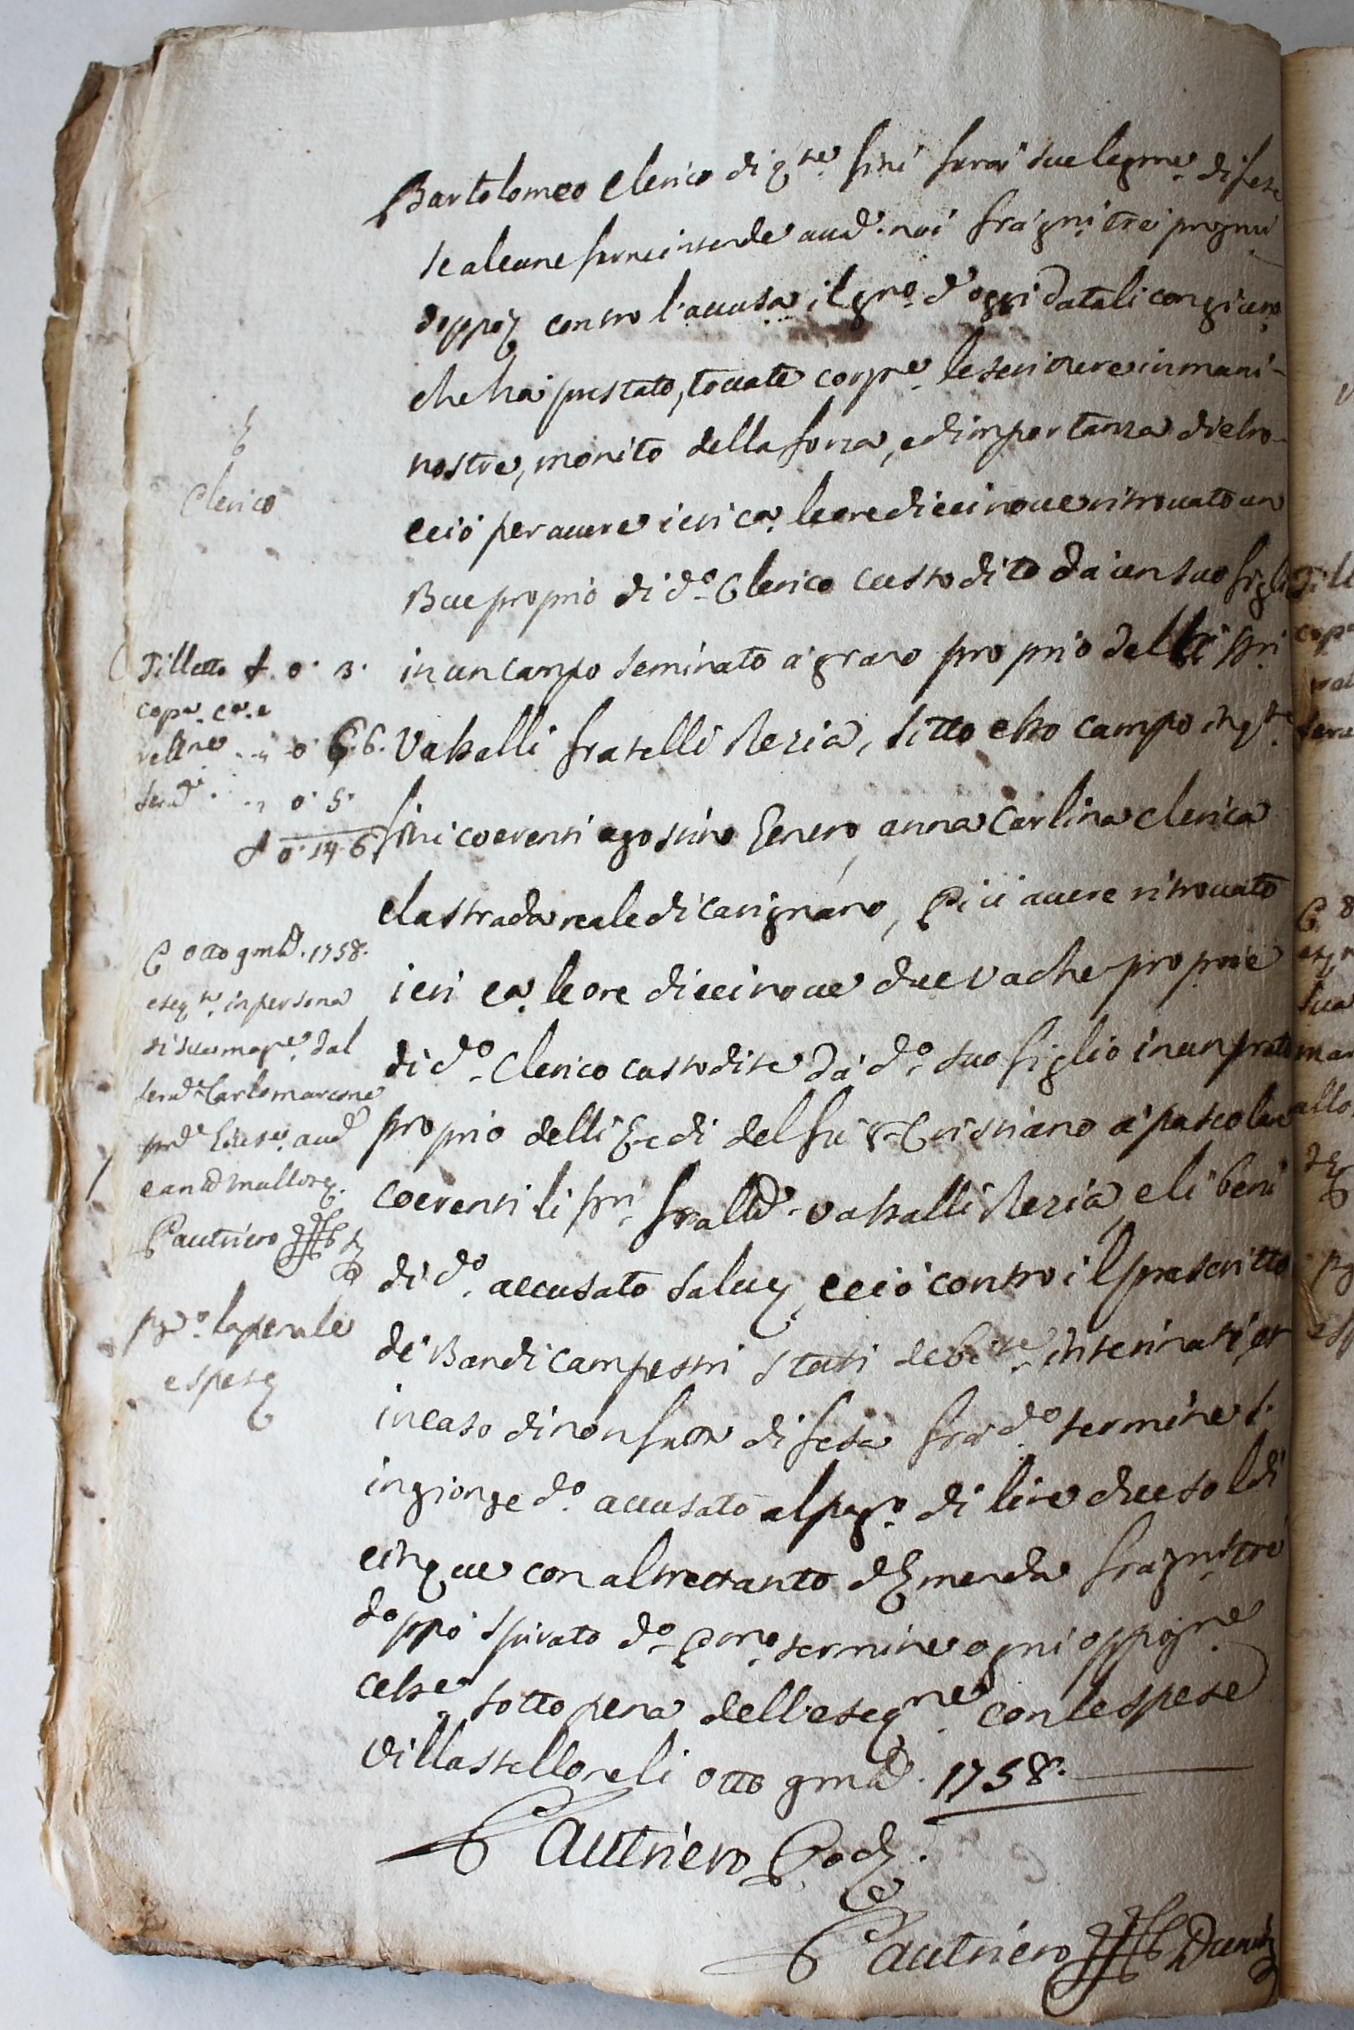 Bartolomeo Clerico di q.te fini farà sue legme. difese
se alcune farne intende avd. noi fra gni tre prossmi
doppo contro l'accusa il gno. d'oggi datali con giuro.
che ha prestato, toccate corpe. le scritture in mani
nostre, monito della forza, ed importanza di etro
e ciò per avere ieri ca. le ore diecinoue ritrouato un
Bue proprio di do. Clerico custodito da un suo figlio
in un campo seminato a grano proprio delli ssri
Vassalli fratelli Rezia, sitto esso campo in q.te
fini coerenti agostino Genero, anna Carlina clerica
e la strada reale di carignano, Più auere ritrouato
ieri ca. le ore diecinoue due vache proprie
di do. Clerico custodite da do. suo figlio in un prato
proprio delli Eredi del fu Cristiano a pascolare
coerenti li sri. fratlli. vassalli Rezia, e li beni
di do. accusato salui, e ciò contro il prescritto
de Bandi campestri stati debite. interinati, et
in caso di non fatta difesa fra do. termine s.
ingionge do. accusato al pago. di lire due soldi
cinque con altrettanto d'Emenda fra gni tre
doppo spirato do. Pmo. termine ogni opposne.
cesse. sotto pena dell'esecne. con le spese
Villastellone li otto gmbre. 1758.
Gautriero Pod.
Gautriero
Clerico
Tilletto £. 0. 3.
copa. ca. e
relne. .. 0. 6. 6.
serd. .. 0. 5.
£ 0. 14. 6.
otto gmbre. 1758.
eseqta. in persona
di sua moge. dal
serd. Carlo marcone
Gautriero
pgo. la penale
e spese